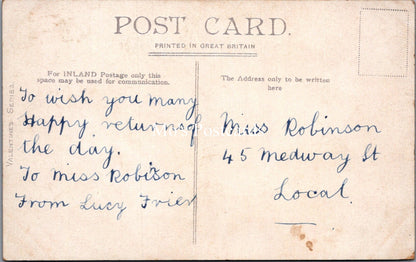 POST CARD.
PRINTED IN GREAT BRITAIN
For INLAND Postage only this
space may be used for communication.
The Address only to be written
here
VALENTINES SERIES
To wish you many
Happy returns of
the day.
To Miss Robison
From Lucy Frier
Miss Robinson
45 Medway St
Local.